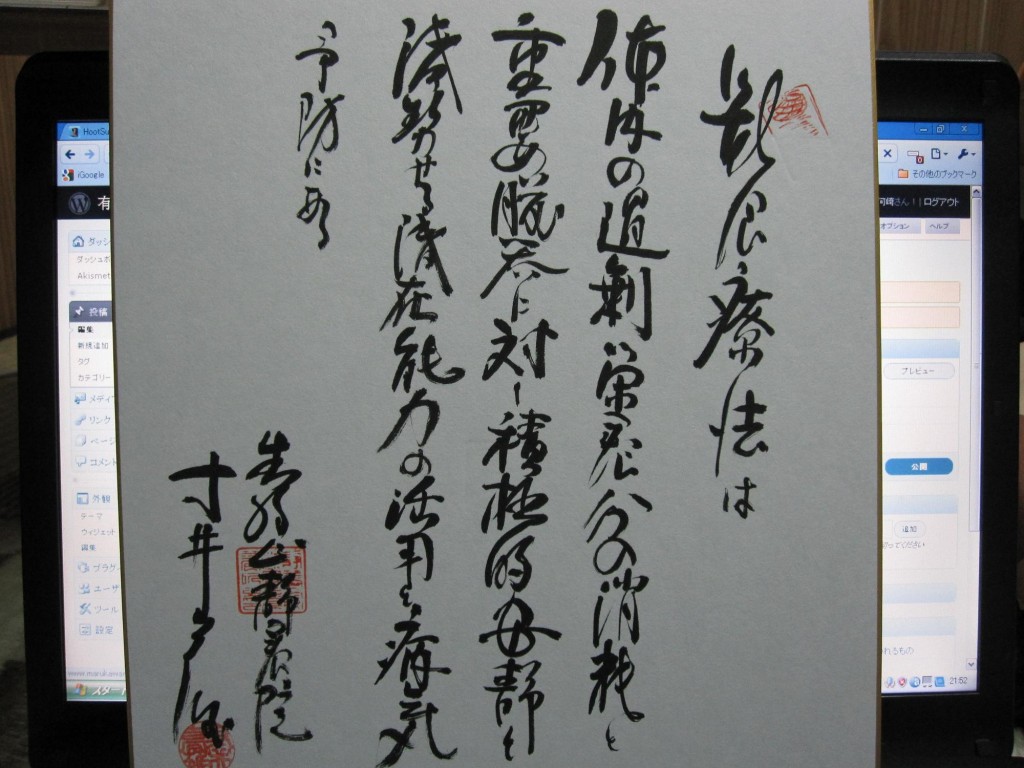 断食療法は
体内の過剰栄養分の消耗と
重要め臓器に対し積極的安静を
得らせる潜在能力の活用と病気
予防にある
生駒山静養院
寸井戸
HootSu
iGoogle
有
ダッシ
ダッシュボ
Akismet
投稿
編集
新規追加
タグ
カテゴリー
メディ
リンク
ページ
コメント
外観
テーマ
ウィジェット
編集
プラグ
ユーザ
ツール
設定
スタート
その他のブックマーク
さん！ | ログアウト
オプション
ヘルプ
プレビュー
公開
追加
ってください
れるもの
21:52